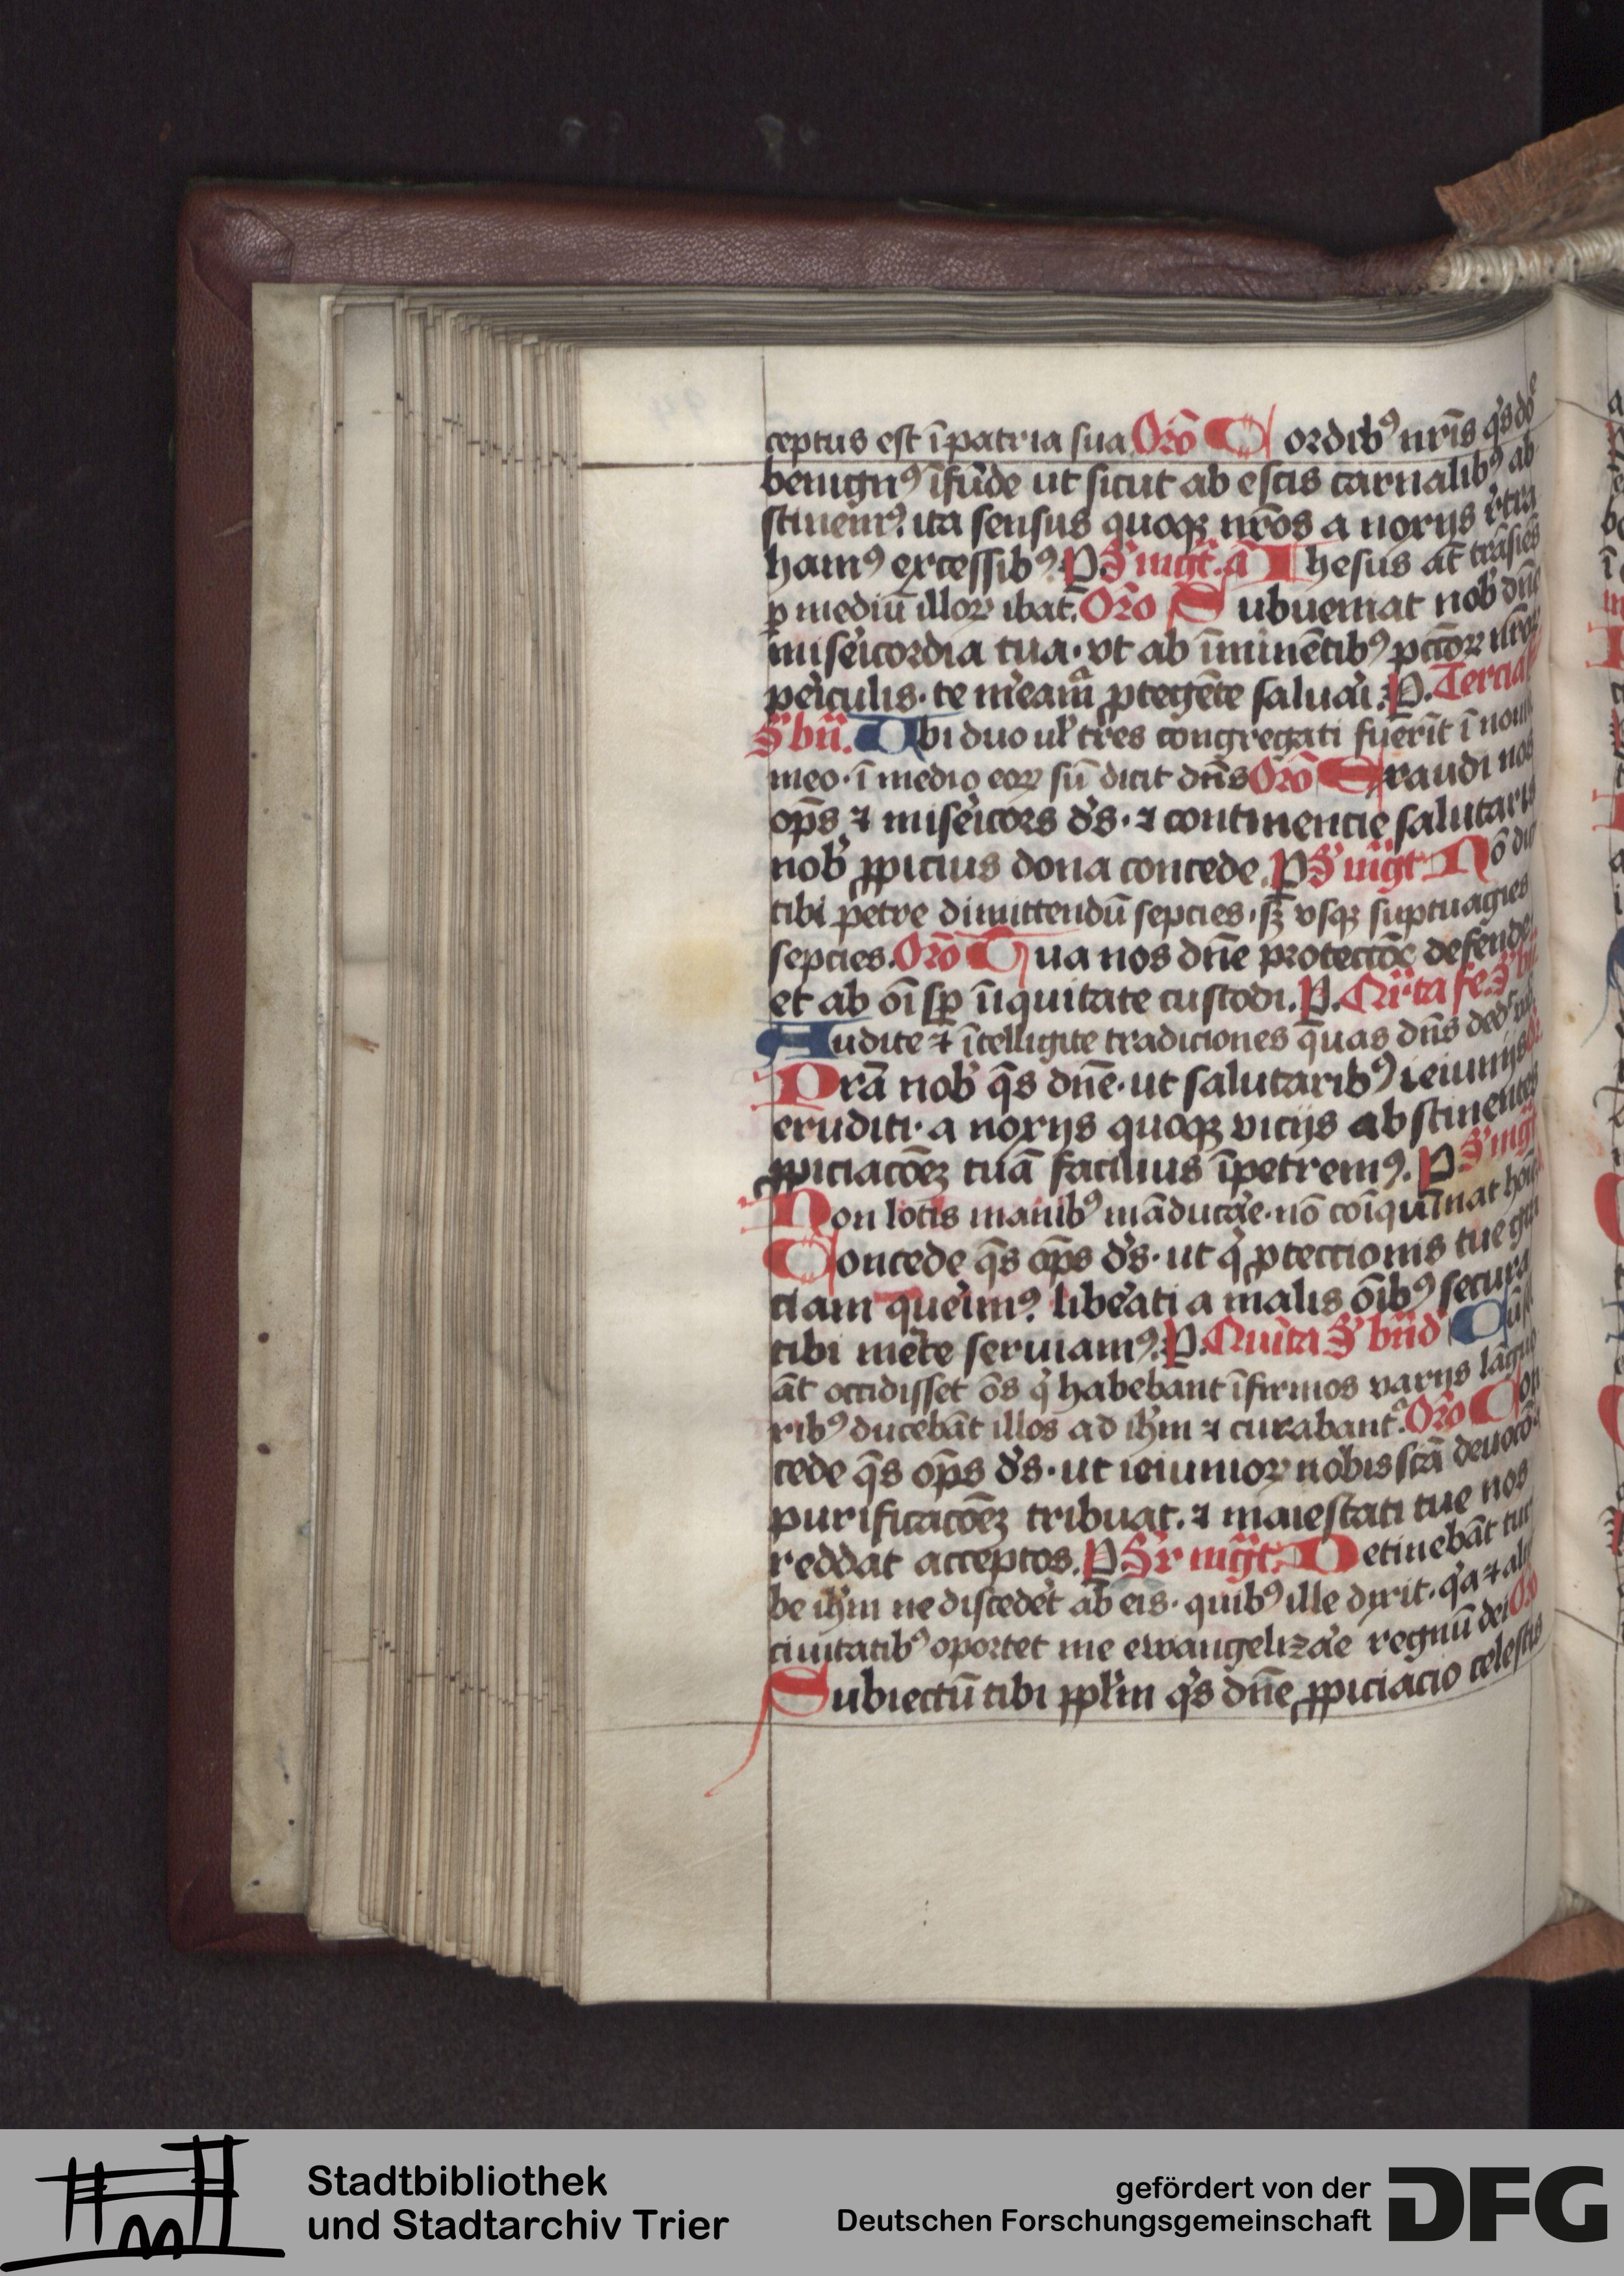 ceptus est ī patria sua Orō Cordibꝯ nr̄is q̄s dn̄e
benignꝯ īfūde ut sicut ab escis carnalibꝯ ab
stinemꝯ. ita sensus quoqꝫ nr̄os a noxijs r̓tra
hamꝯ excessibꝯ. P S' mgt̄. a Ihesus aūt trāsiēs
ꝑ mediū illoꝝ ibat. Orō Subueniat nob̓ dn̄e
mis̓icordia tua. vt ab īminētibꝯ pc̄toꝝ nr̄oꝝ
pe̓iculis. te m̓eam̄ ꝓtegēte salua̓i. P. Tercia
S' bn̄. Ubi duo ul̓ tres congregati fuerīt ī noīe
meo. ī medio eoꝝ sū dicit dn̄s Orō Exaudi nos
op̄s ⁊ mise̓icors d̓s. ⁊ continencie salutaris
nob̓ ꝓpicius dona concede. P S' mgt Nō dico
tibi petre dimittendū sepcies. sꝫ vsqꝫ suptuagies
sepcies. Orō Tua nos dn̄e protectōe defende
et ab oī sꝑ īiquitate custodi. P. Qu̓rta fe. S' bn̄
Audite ⁊ ītelligite tradiciones quas dn̄s ded̓ uob̓
Prā nob̓ q̄s dn̄e. ut salutaribꝯ ieiunijs
eruditi. a noxijs quoqꝫ vicijs abstinentes
ꝓpiciacōeꝫ tuā facilius īpetremꝯ. P S' mgt̄
Non lotis manibꝯ māduca̓e. nō coīquinat hoīeꝫ
Concede q̄s op̄s d̓s. ut q̓ ꝓtectionis tue gra
ciam que̓imꝯ. libe̓ati a malis oībꝯ secura
tibi mēte seruiamꝯ. P. Quīta S' bn̄d' Cū sol
aūt occidisset ōs q̓ habebant īfirmos varijs lāguo
ribꝯ ducebāt illos ad ih̄m ⁊ curabant᷑. Orō Con
cede q̄s op̄s d̓s. ut ieiunioꝝ nobis sc̄ā deuocō ⁊
purificacōeꝫ tribuat. ⁊ maiestati tue nos
reddat acceptos. P Sr̓ mgt̄. Detinebāt tur
be ih̄m ne discede̓et ab eis. quibꝯ ille dixit. q̓a ⁊ alijs
ciuitatibꝯ oportet me ewangeliza̓e regnū dei Or̄
Subiectū tibi ppl̓m q̓s dn̄e ꝓpiciacio celestis
Stadtbibliothek
und Stadtarchiv Trier
gefördert von der
Deutschen Forschungsgemeinschaft
DFG